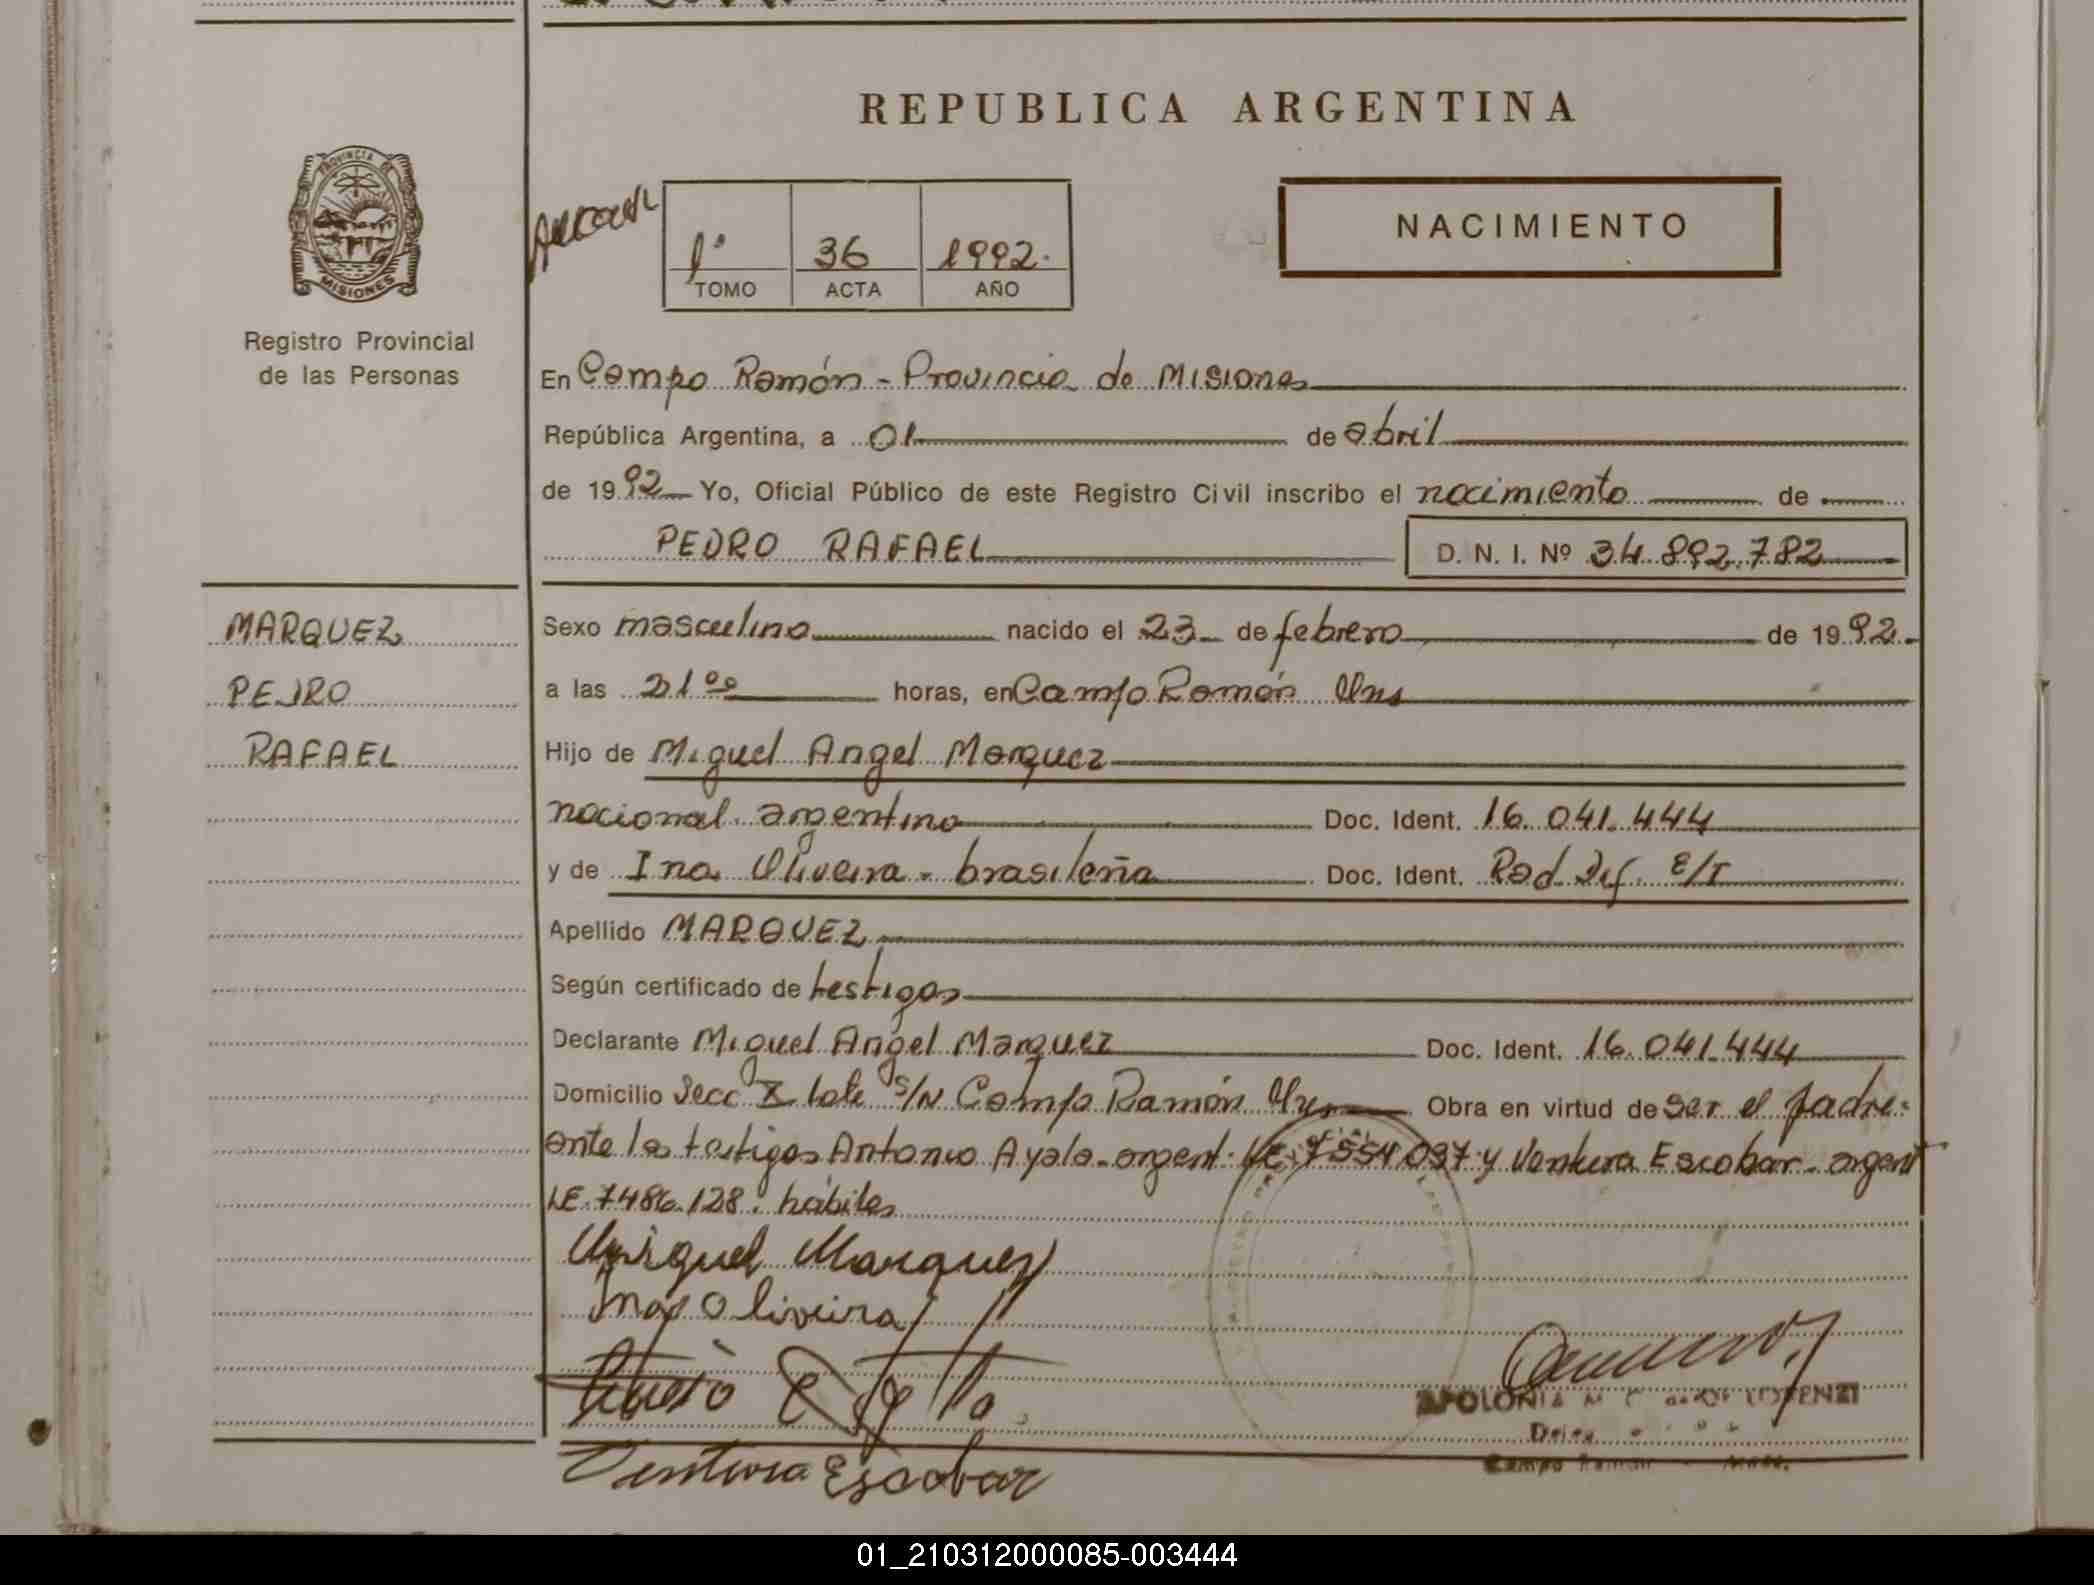 REPUBLICA ARGENTINA
PROVINCIA DE
MISIONES
Registro Provincial
de las Personas
1º 36 1992.
TOMO ACTA AÑO
NACIMIENTO
En Campo Ramón - Provincia de Misiones
República Argentina, a 01 de abril
de 1992 Yo, Oficial Público de este Registro Civil inscribo el nacimiento de
PEDRO RAFAEL D. N. I. Nº 34.892.782
MARQUEZ
PEDRO
RAFAEL
Sexo masculino nacido el 23 de febrero de 1992.
a las 21⁰⁰ horas, en Campo Ramón Mns
Hijo de Miguel Angel Marquez
nacional. argentino Doc. Ident. 16.041.444
y de Ina Oliveira - brasileña Doc. Ident. Rad. Def. E/T
Apellido MARQUEZ
Según certificado de testigos
Declarante Miguel Angel Marquez Doc. Ident. 16.041.444
Domicilio Secc X lote S/N Campo Ramón Mns Obra en virtud de ser el padre.
ante los testigos Antonio Ayala - argent. LE. 7554.037 y Ventura Escobar - argent
LE. 7486.128. hábiles
Miguel Marquez
Ina Oliveira
Ventura Escobar
APOLONIA M. LORENZI
Campo Ramón
01_210312000085-003444